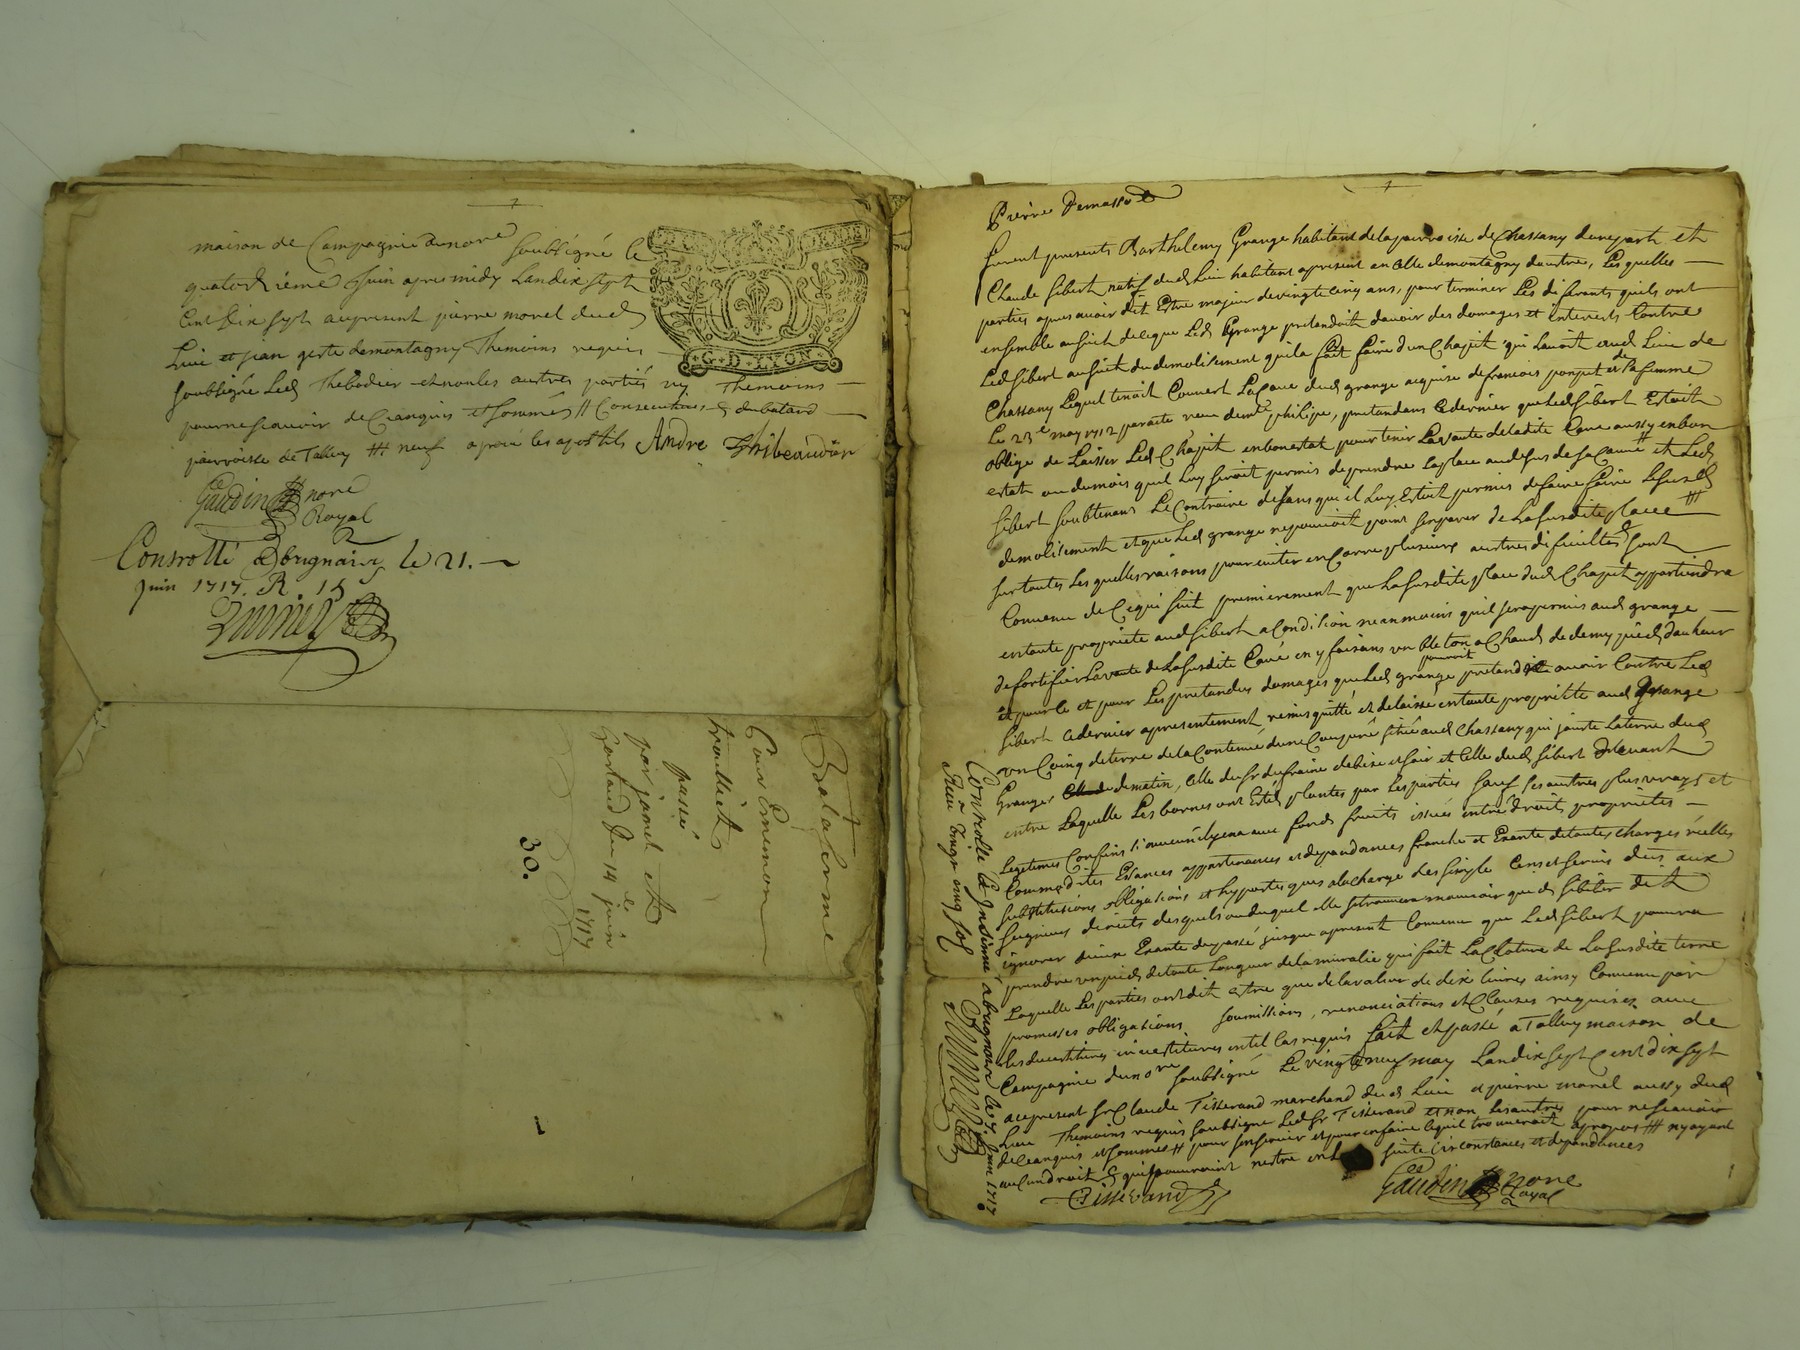 maison de Campagnie dunore soubsigné le
quatorzième Juin apres midy Landix sept
Cent dix sept aupresent pierre morel dud
Lieu et jean geste demontagny Themoins requis
soubsigné Led Thebodier et non les autres parties ny Themoins
pour ne scauoir de Ceanquis et sommés # Consecutiues
parroisse de Talluy ### neuf apreué les apostils André Thibeaudier
Gaudin nore
Royal
Controllé a brignais le 21.
juin 1717. R. 15
G·D·LYON
passé
par jannet
le 14 juin
1717
30.
Pierre
furent presents Barthelemy Grange habitant dela parroisse de Chassany dune part et
Claude Gibert natif dud Lieu habitant apresent en Celle demontagny dautre, Les quelles
parties apres auoir dit Estre majeur de vingt Cinq ans, pour terminer Les diferants quils ont
ensemble au sujet de ce que Led Grange pretandoit dauoir des domages et interests Contre
Led Gibert au sujet du demolisement quil a fait faire dun Chapit qui Lauoit aud Lieu de
Chassany Lequel tenoit Couuert La Caue dud grange acquise de francois ponpet et de sa femme
Le 23e may 1712 par acte receu demte philipe, pretandans Ce dernier que Led Gibert Estoit
oblige de Laisser Led Chapit en bon estat pour tenir La vaute de ladite Caue aussy en bon
estat ou du mois quil Luy seroit permis de prendre La place au desus de sa Caue # et Led
Gibert soubtenans Le Contraire disans que il Luy Estoit permis de faire faire Le susd
demolisement et que Led grange ne pouuoit point semparer de La susdite place ###
sur toutes Les quelles raisons pour euiter en Corre plusieurs autres dificultes sont
Conuenu de Ce qui suit premierement que La susdite place dud Chapit appartiendra
en toute propriete aud Gibert a Condition neanmoins quil sera permis aud grange
de fortifier La vaute de La susdite Caue en y faisans un beton a Chaud de demy pied dauteur
et pour le et pour Les pretandus domages que Led grange pouuoit pretandre auoir Contre Led
Gibert Ce dernier a presentement remis quitté et delaissé en toute propriete aud grange
un Coing de terre de la Contenue dune Coupée située aud Chassany qui jouite La terre dud
Grange de matin, Celle du Sr dufraine de bize et soir et Celle dud Gibert de vant
entre Laquelle Les bornes ont Estés plantés par Les parties sauf ses autres plus vrays et
Legitimes Confins si aucun il y en a auec fonds fruits issues entrés droits proprietés
Commodités Esances appartenances et dependances franche et Exante de toutes charges réelles
substitutions obligations et hypoteques a la charge des simple Cens et seruis deus aux
seigneurs directs desquels ou duquel elle se trouuera mouuoir que d Gibert dit
ignorer deüe Exante du passé jusque apresent Conuenu que Led Gibert pourra
prendre un pied de toute Longuer de la muralie qui fait La Cloture de La susdite terre
Laquelle Les parties ont dit estre que de la valeur de dix liures ainsy Conuenu par
promesses obligations soumissions, renonciations et Clauses requises auec
les deuestitures inuestitures en tel Cas requis fait et passé a Talluy maison de
Campagnie du nore soubsigné Le vingt neuf may Landix sept Cent dix sept
aupresent Sr Claude Tisserand marchand dud Lieu et pierre morel aussy dud
Lieu Themoins requis soubsigné Led Sr Tisserand et non Les autres pour ne scauoir
de Ceanquis et sommés # pour sen seruir et pour en faire Ce quil trouuerait apropos ### ny ayant
aucun droit suite Circonstances et dependances
Tisserand
Gaudin nore
Royal
Controllé Et Insinué a brignais le 7. Juin 1717.
Receu Vingt cinq sols